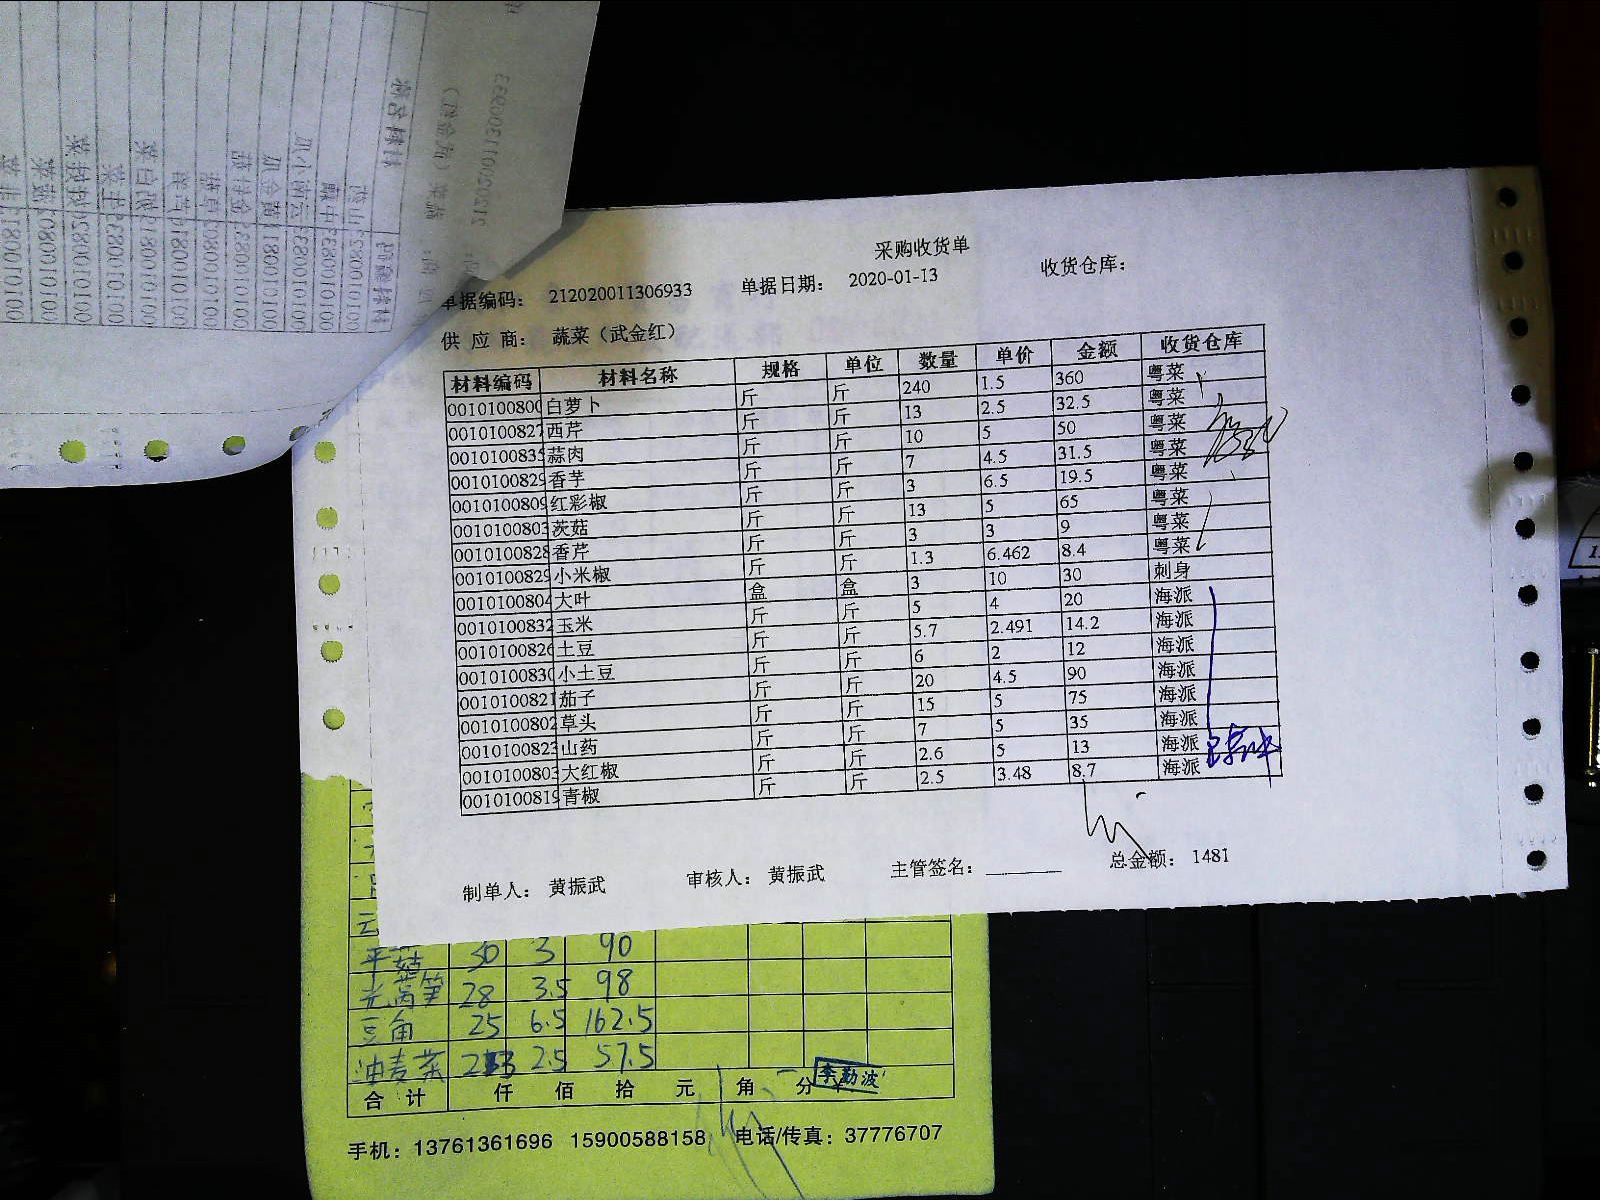 采购收货单
单据编码： 212020011306933 单据日期： 2020-01-13 收货仓库：
供 应 商： 蔬菜（武金红）
材料编码 材料名称 规格 单位 数量 单价 金额 收货仓库
0010100800 白萝卜 斤 斤 240 1.5 360 粤菜
0010100827 西芹 斤 斤 13 2.5 32.5 粤菜
0010100835 蒜肉 斤 斤 10 5 50 粤菜
0010100829 香芋 斤 斤 7 4.5 31.5 粤菜
0010100809 红彩椒 斤 斤 3 6.5 19.5 粤菜
0010100803 茨菇 斤 斤 13 5 65 粤菜
0010100828 香芹 斤 斤 3 3 9 粤菜
0010100829 小米椒 斤 斤 1.3 6.462 8.4 粤菜
0010100804 大叶 盒 盒 3 10 30 刺身
0010100832 玉米 斤 斤 5 4 20 海派
0010100826 土豆 斤 斤 5.7 2.491 14.2 海派
0010100830 小土豆 斤 斤 6 2 12 海派
0010100821 茄子 斤 斤 20 4.5 90 海派
0010100802 草头 斤 斤 15 5 75 海派
0010100823 山药 斤 斤 7 5 35 海派
0010100803 大红椒 斤 斤 2.6 5 13 海派
0010100819 青椒 斤 斤 2.5 3.48 8.7 海派
制单人： 黄振武 审核人： 黄振武 主管签名： 总金额： 1481
平菇 30 3 90
光莴笋 28 3.5 98
豆角 25 6.5 162.5
油麦菜 23 2.5 57.5
合 计 仟 佰 拾 元 角 分 李勤波
手机：13761361696 15900588158 电话/传真：37776707